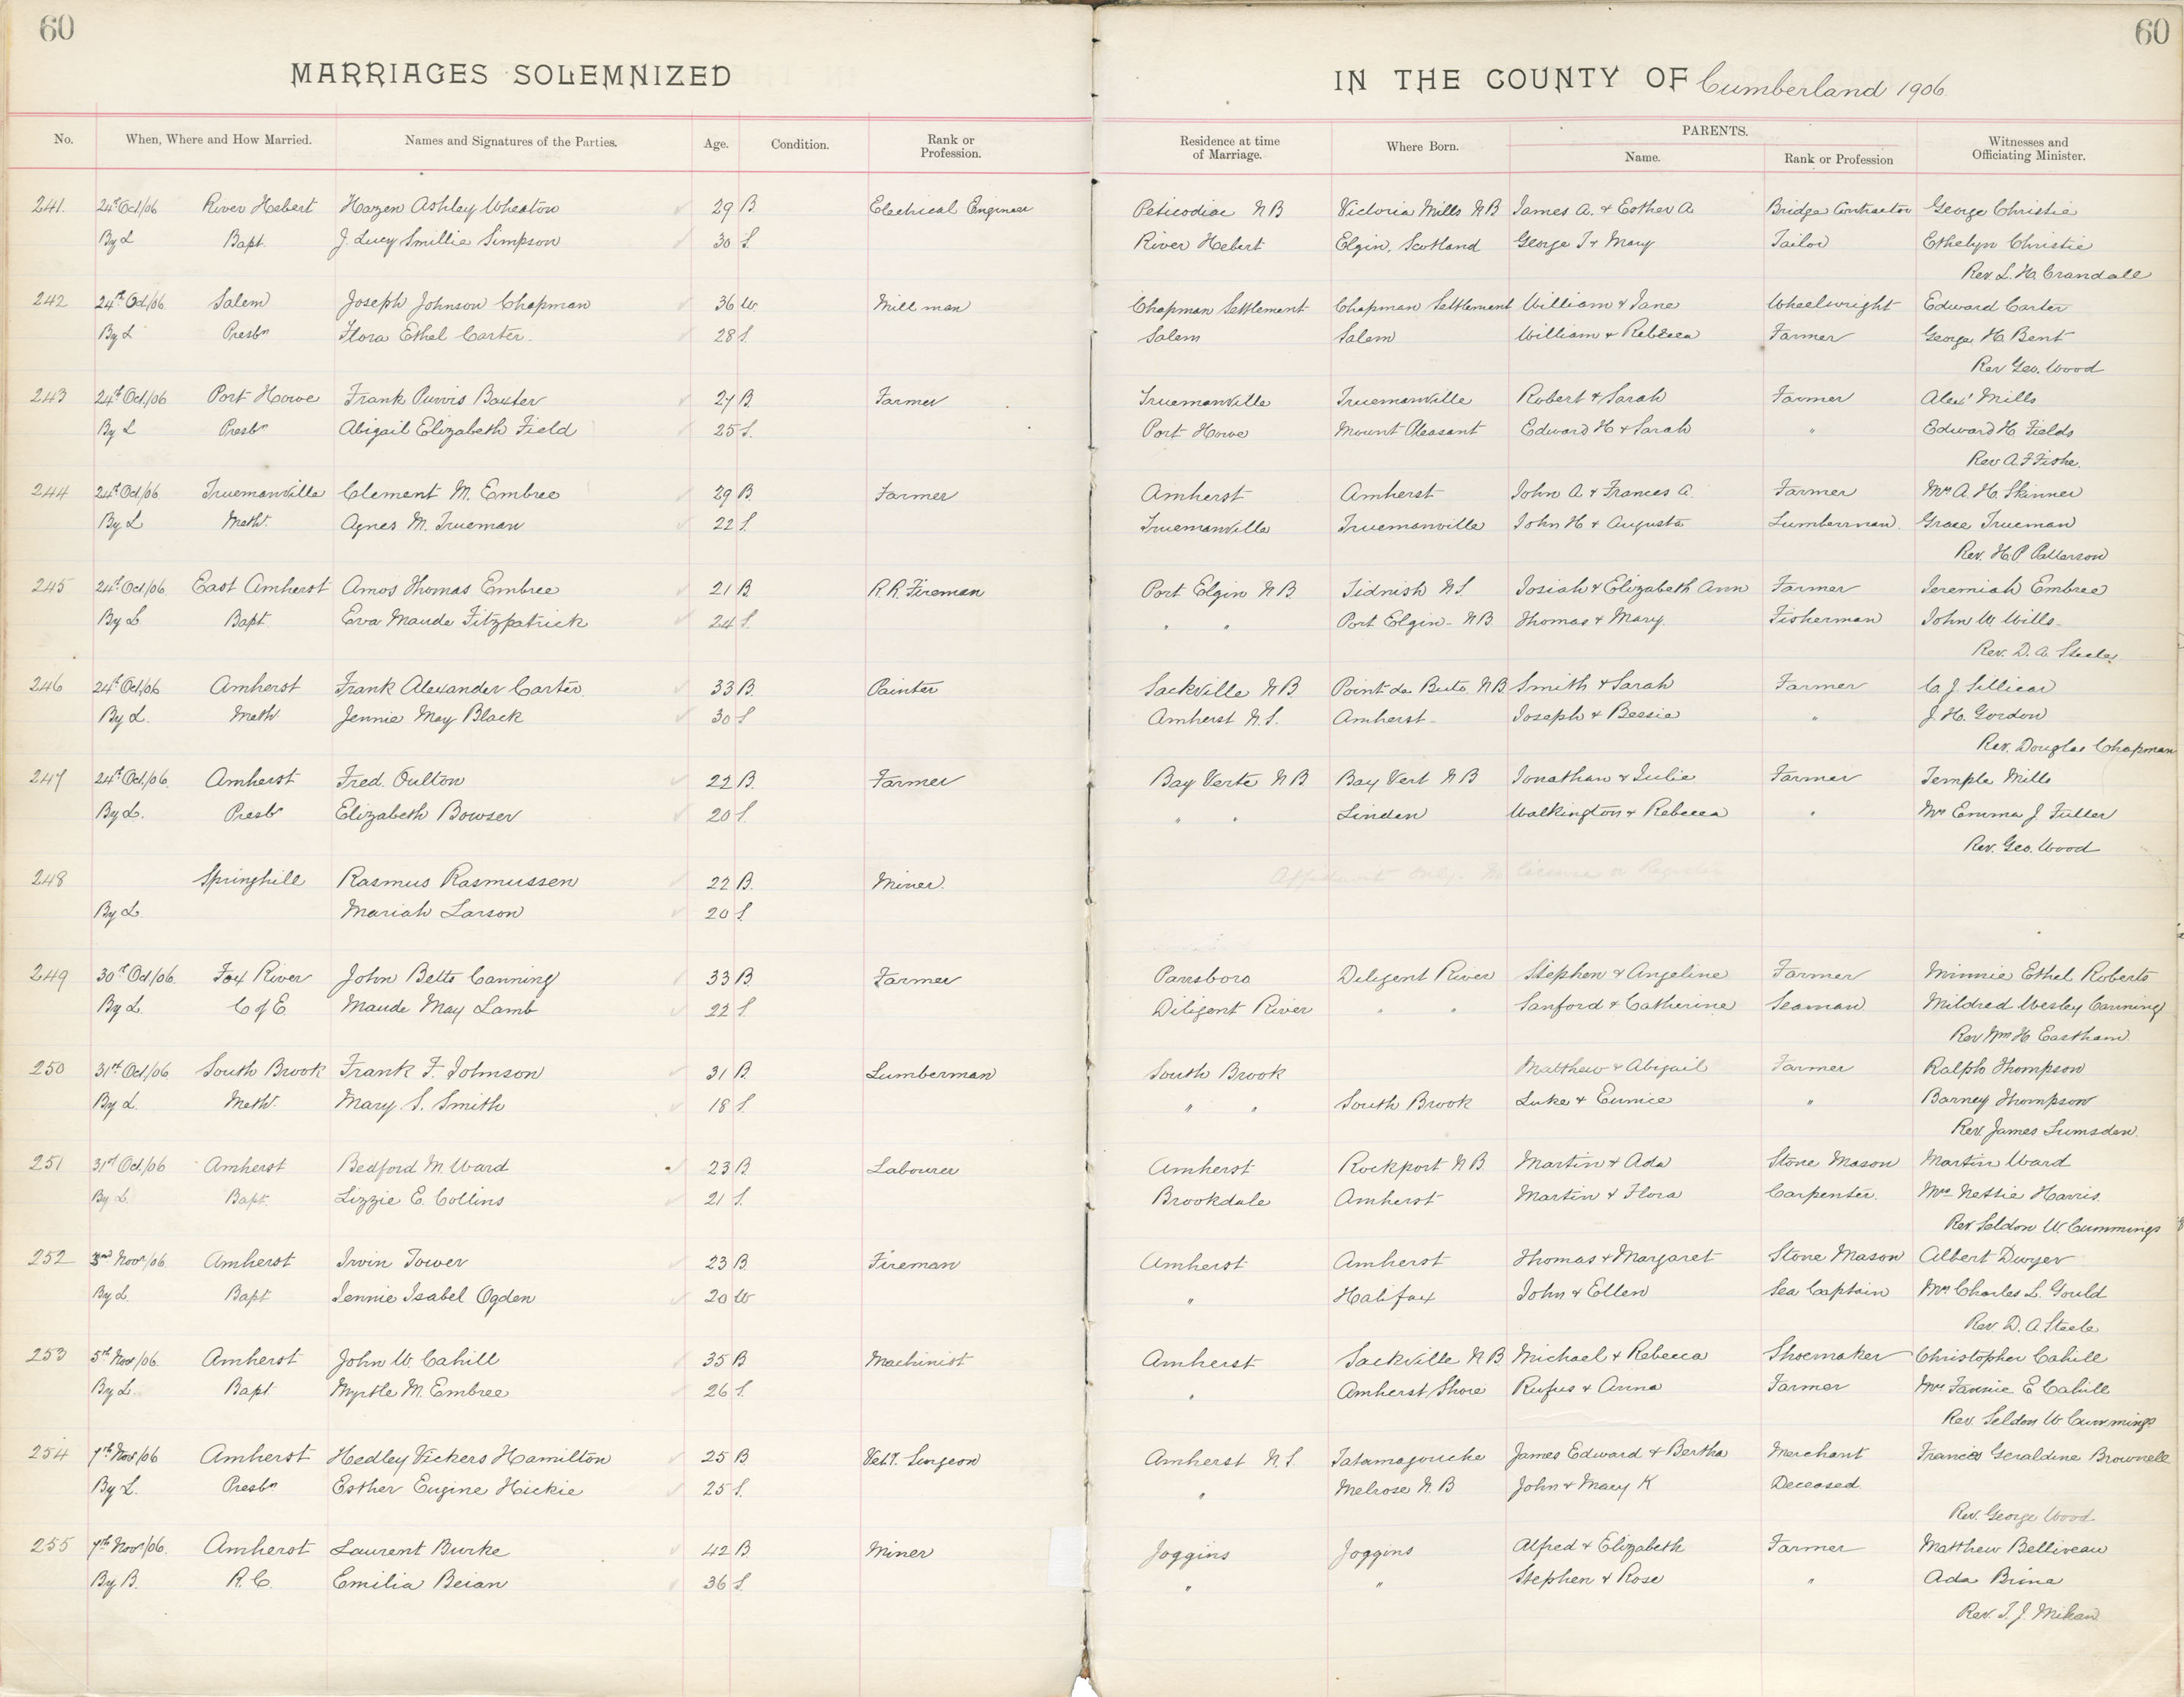 60 60
MARRIAGES SOLEMNIZED IN THE COUNTY OF Cumberland 1906
No. When, Where and How Married. Names and Signatures of the Parties. Age. Condition. Rank or Profession. Residence at time of Marriage. Where Born. PARENTS. Name. Rank or Profession Witnesses and Officiating Minister.
241. 24th Oct/06 River Hebert Hazen Ashley Wheaton 29 B Electrical Engineer Peticodiac N B Victoria Mills N B James A. + Esther A Bridge Contractor George Christie
By L Bapt. J. Lucy Smillie Simpson 30 S. River Hebert Elgin, Scotland George T + Mary Tailor Ethelyn Christie
Rev L. H. Crandall
242 24th Oct/06 Salem Joseph Johnson Chapman 36 W. Mill man Chapman Settlement Chapman Settlement William + Jane Wheelwright Edward Carter
By L Presbn Flora Ethel Carter. 28 S. Salem Salem William + Rebecca Farmer George H. Bent
Rev Geo. Wood
243 24th Oct/06 Port Howe Frank Purvis Baxter 27 B. Farmer Truemanville Truemanville Robert + Sarah Farmer Alexr Mills
By L Presbn Abigail Elizabeth Field 25 S. Port Howe Mount Pleasant Edward H + Sarah " Edward H Fields
Rev A. F Fishe.
244 24th Oct/06 Truemanville Clement M. Embree 29 B. Farmer Amherst Amherst John A. + Frances A. Farmer Mrs A. H. Skinner
By L Meth. Agnes M. Trueman 22 S. Truemanville Truemanville John H + Augusta Lumberman. Grace Trueman
Rev. H. P Patterson
245 24th Oct/06 East Amherst Amos Thomas Embree 21 B R. R. Fireman Port Elgin N B Tidnish N. S. Josiah + Elizabeth Ann Farmer Jeremiah Embree
By L Bapt Eva Maude Fitzpatrick 24 S. " " Port Elgin - N B Thomas + Mary. Fisherman John W. Wills
Rev. D. A. Steele.
246 24th Oct/06 Amherst Frank Alexander Carter 33 B. Painter Sackville N B Point de Bute N B Smith + Sarah Farmer C. J. Silliear
By L. Meth. Jennie May Black 30 S Amherst N. S. Amherst Joseph + Bessie " J. H. Gordon
Rev. Douglas Chapman
247 24th Oct/06. Amherst Fred. Oulton 22 B. Farmer Bay Verte N B Bay Vert N B Jonathan + Julie Farmer Temple Mills
By L. Presbn Elizabeth Bowser 20 S. " " Linden Walkington + Rebecca " Mrs Emma J. Fuller
Rev. Geo. Wood
248 Springhill Rasmus Rasmussen 22 B. Miner. Affidavit only. No license or Register
By L. Mariah Larson 20 S.
249 30th Oct/06. Fox River John Betts Canning 33 B. Farmer Parrsboro Diligent River Stephen + Angeline Farmer Minnie Ethel Roberts
By L. C of E. Maude May Lamb 22 S. Diligent River " " Sanford + Catherine Seaman Mildred Wesley Canning
Rev Wm H Eastham.
250 31st Oct/06 South Brook Frank F. Johnson 31 B. Lumberman South Brook Matthew + Abigail Farmer Ralph Thompson
By L. Meth. Mary S. Smith 18 S. " " South Brook Luke + Eunice " Barney Thompson
Rev. James Lumsden.
251 31st Oct/06 Amherst Bedford M Ward 23 B. Labourer Amherst Rockport N B. Martin + Ada Stone Mason Martin Ward
By L. Bapt. Lizzie E. Collins 21 S. Brookdale Amherst Martin + Flora Carpenter. Mrs Nettie Harris.
Rev Seldon W. Cummings
252 3rd Nov/06 Amherst Irvin Tower 23 B. Fireman Amherst Amherst Thomas + Margaret Stone Mason Albert Dwyer
By L. Bapt Jennie Isabel Ogden 20 W " Halifax John + Ellen Sea Captain Mrs Charles L. Gould
Rev. D. A. Steele
253 5th Nov/06. Amherst John W. Cahill 35 B Machinist Amherst Sackville N B Michael + Rebecca Shoemaker Christopher Cahill
By L Bapt Myrtle M. Embree 26 S. " Amherst Shore Rufus + Anna Farmer Mrs Fannie E Cahill
Rev. Seldon W. Cummings
254 7th Nov/06 Amherst Hedley Vickers Hamilton 25 B Vet.y. Surgeon Amherst N. S Tatamagouche James Edward + Bertha Merchant Frances Geraldine Brownell
By L. Presbn Esther Eugine Hickie 25 S. " Melrose N. B John + Mary K Deceased.
Rev. George Wood
255 7th Nov/06. Amherst Laurent Burke 42 B Miner Joggins Joggins Alfred + Elizabeth Farmer Matthew Belliveau
By B. R. C. Emilia Beian 36 S. " " Stephen + Rose " Ada Brine
Rev. T. J. Mihan